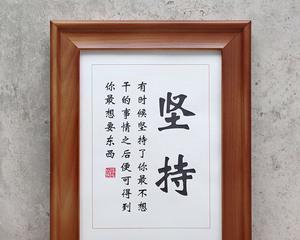 坚持
有时候坚持了你最不想
干的事情之后便可得到
你最想要东西